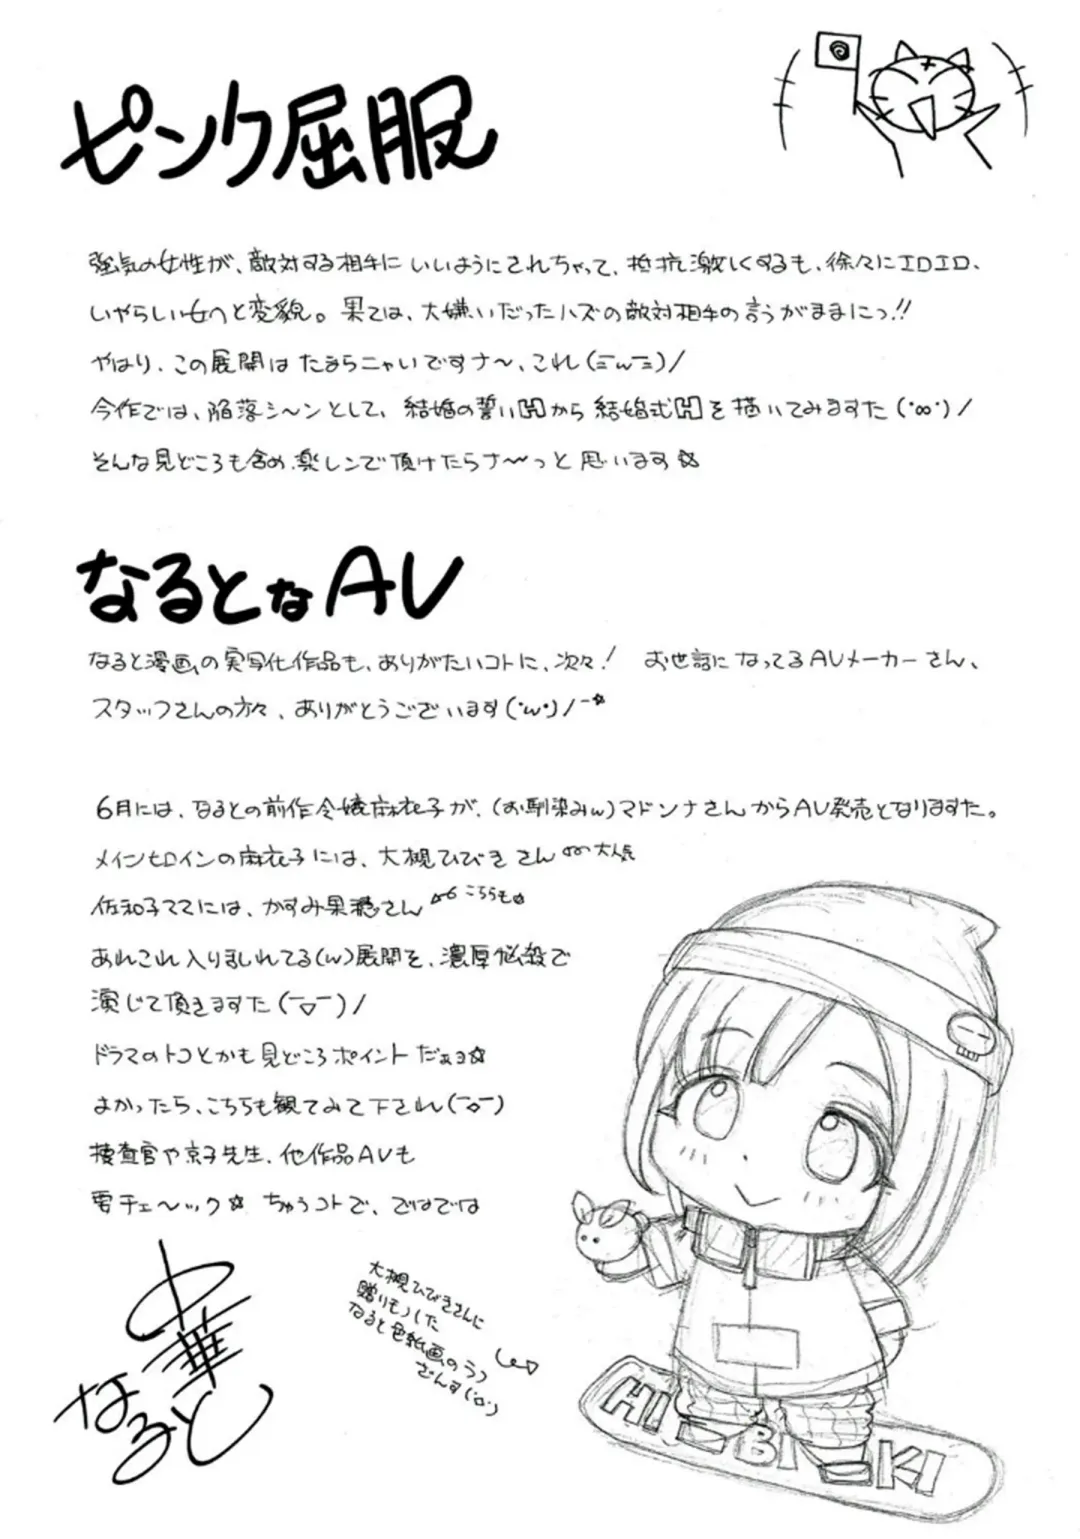 ピンク屈服
強気の女性が、敵対する相手にいいようにされちゃって、抵抗激しくするも、徐々にエロエロ、
いやらしい女へと変貌。果ては、大嫌いだったハズの敵対相手の言うがままにっ!!
やはり、この展開はたまらニャいですナ〜、これ(ミ‾w‾ミ)/
今作では、陥落シ〜ンとして、結婚の誓いHから結婚式Hを描いてみますた(・∞・)/
そんな見どころも含め、楽レンで頂けたらナ〜っと思います☆
なるとなAV
なると漫画の実写化作品も、ありがたいコトに、次々! お世話になってるAVメーカーさん、
スタッフさんの方々、ありがとうございます(・w・)/-☆
6月には、なるとの前作令嬢麻衣子が、(お馴染みw)マドンナさんからAV発売となりますた。
メインヒロインの麻衣子には、大槻ひびきさん 大人気
佐和子ママには、かすみ果穂さん こちらも☆
あれこれ入りまじれてる(w)展開を、濃厚悩殺で
演じて頂きますた(‾▽‾)/
ドラマのトコとかも見どころポイントだぁョ☆
よかったら、こちらも観てみて下され(‾o‾)
捜査官や京子先生、他作品AVも
要チェ〜ック☆ ちゅうコトで、ではでは
中華
なると
大槻ひびきさんに
贈りもノした
なると色紙画のラフ
ざんす(・o・)
HIBIKI